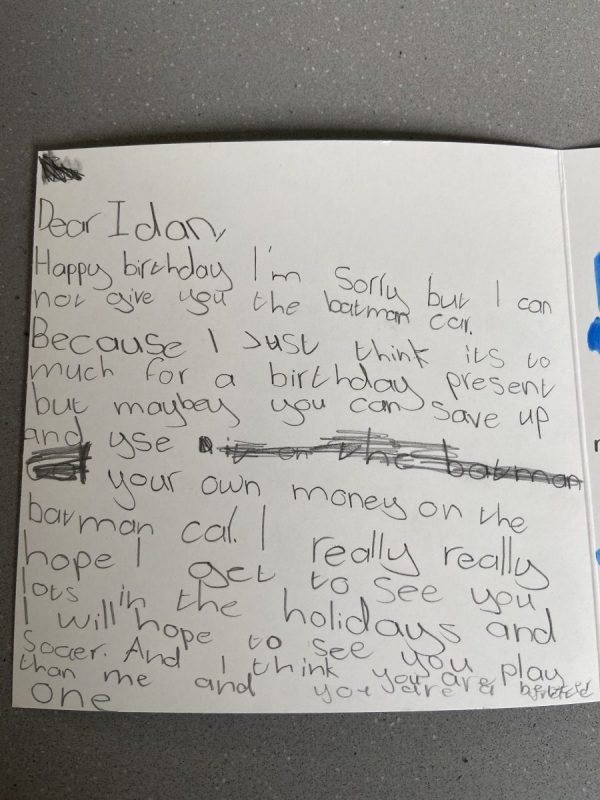 Dear Idan,
Happy birthday I'm Sorry but I can
not give you the batman car.
Because I Just think its to
much for a birthday present
but maybey you can save up
and yse it on the batman
your own money on the
batman car. I really really
hope I get to see you
lots in the holidays and
I will hope to see you play
Soccer. And I think you are
than me and you are a
one